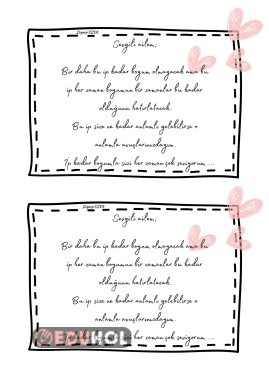 Sevgili ailem;
Bir daha bu ip kadar boyum olmayacak ama bu
ip her zaman boyumun bir zamanlar bu kadar
olduğunu hatırlatacak.
Bu ip size ne kadar anlamlı gelebilirse o
anlamla avuçlarınızdayım.
İp kadar boyumla sizi her zaman çok seviyorum ...
Sevgili ailem;
Bir daha bu ip kadar boyum olmayacak ama bu
ip her zaman boyumun bir zamanlar bu kadar
olduğunu hatırlatacak.
Bu ip size ne kadar anlamlı gelebilirse o
anlamla avuçlarınızdayım.
EDUHOL
zaman çok seviyorum ...